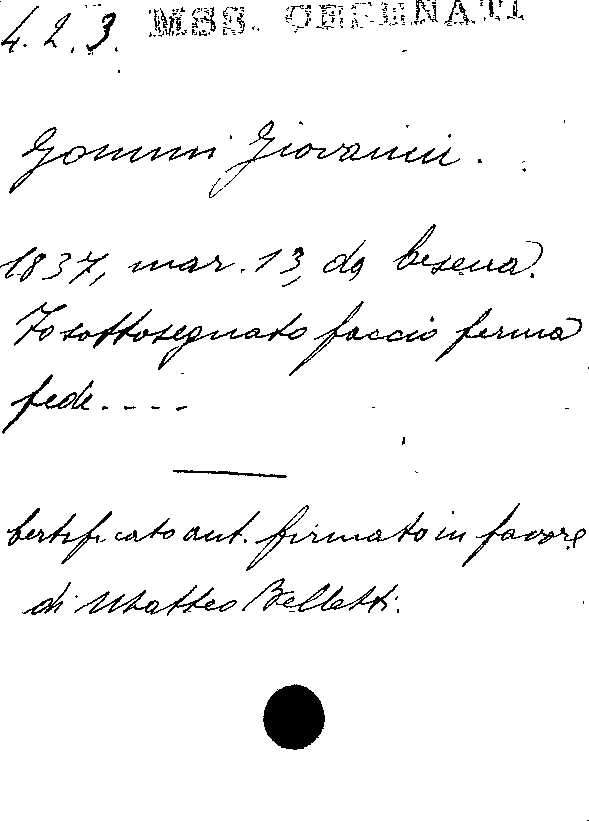 4.2.3. MSS. CESENATI
Gommi Giovanni.
1837, mar. 13, da Cesena.
Io sottosegnato faccio ferma
fede....
Certificato aut. firmato in favore
di Matteo Belletti.